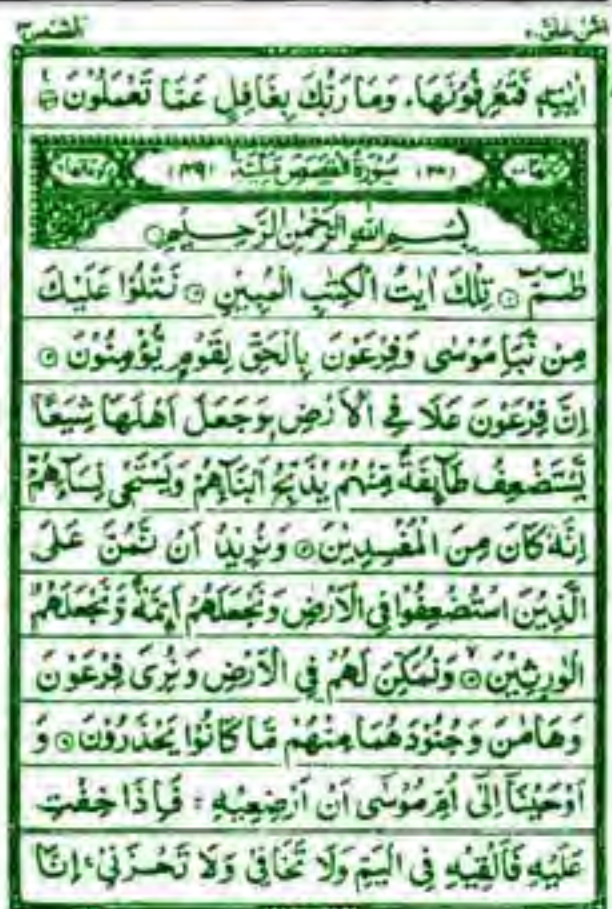 اٰيٰتِهٖ فَتَعْرِفُوْنَهَا، وَمَا رَبُّكَ بِغَافِلٍ عَمَّا تَعْمَلُوْنَ
سُوْرَةُ الْقَصَصِ مَكِّيَّةٌ
بِسْمِ اللّٰهِ الرَّحْمٰنِ الرَّحِيْمِ
طٰسٓمّٓ ۝ تِلْكَ اٰيٰتُ الْكِتٰبِ الْمُبِيْنِ ۝ نَتْلُوْا عَلَيْكَ
مِنْ نَّبَاِ مُوْسٰى وَفِرْعَوْنَ بِالْحَقِّ لِقَوْمٍ يُّؤْمِنُوْنَ ۝
اِنَّ فِرْعَوْنَ عَلَا فِي الْاَرْضِ وَجَعَلَ اَهْلَهَا شِيَعًا
يَّسْتَضْعِفُ طَآئِفَةً مِّنْهُمْ يُذَبِّحُ اَبْنَآءَهُمْ وَيَسْتَحْيٖ نِسَآءَهُمْ
اِنَّهٗ كَانَ مِنَ الْمُفْسِدِيْنَ ۝ وَنُرِيْدُ اَنْ نَّمُنَّ عَلَى
الَّذِيْنَ اسْتُضْعِفُوْا فِي الْاَرْضِ وَنَجْعَلَهُمْ اَئِمَّةً وَّنَجْعَلَهُمُ
الْوٰرِثِيْنَ ۝ وَنُمَكِّنَ لَهُمْ فِي الْاَرْضِ وَنُرِيَ فِرْعَوْنَ
وَهَامٰنَ وَجُنُوْدَهُمَا مِنْهُمْ مَّا كَانُوْا يَحْذَرُوْنَ ۝ وَ
اَوْحَيْنَآ اِلٰٓى اُمِّ مُوْسٰٓى اَنْ اَرْضِعِيْهِ ۚ فَاِذَا خِفْتِ
عَلَيْهِ فَاَلْقِيْهِ فِي الْيَمِّ وَلَا تَخَافِيْ وَلَا تَحْزَنِيْ ۚ اِنَّا